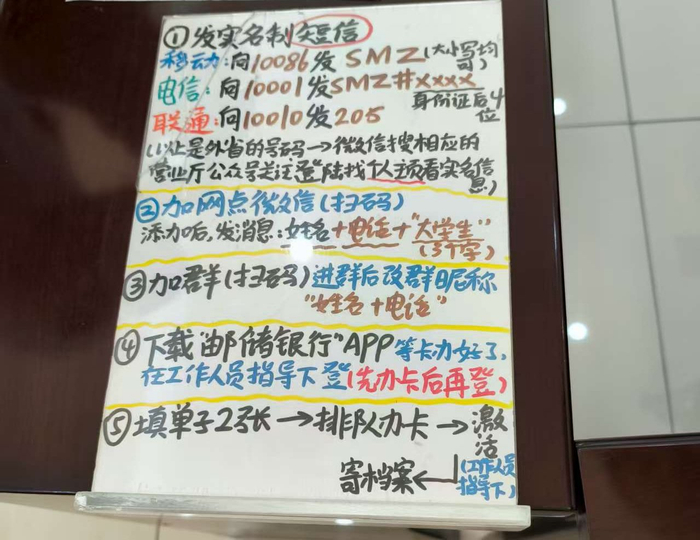 ①发实名制短信
移动:向10086发SMZ(大小写均可)
电信:向10001发SMZ#xxxx
身份证后4位
联通:向10010发205
(以上是外省的号码→微信搜相应的
营业厅公众号关注登陆找个人主页看实名信息)
②加网点微信(扫码)
添加后,发消息:姓名+电话+"大学生"
(3个字)
③加群(扫码)进群后改群昵称
"姓名+电话"
④下载"邮储银行"APP等卡办好了,
在工作人员指导下登(先办卡后再登)
⑤填单子2张→排队办卡→激活
(工作人员指导下)
寄档案←